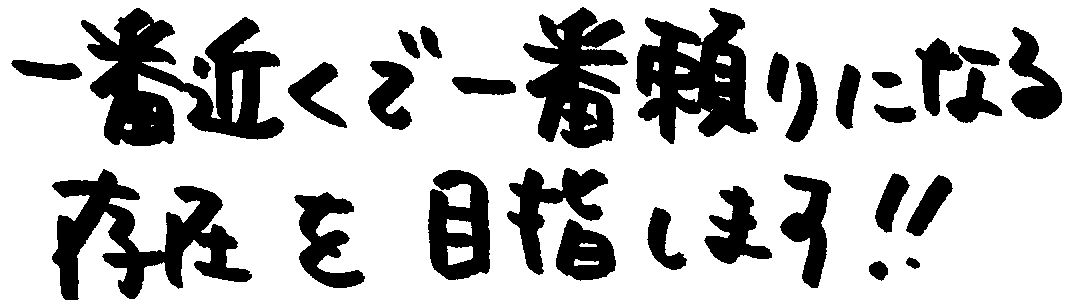 一番近くで一番頼りになる
存在を目指します!!